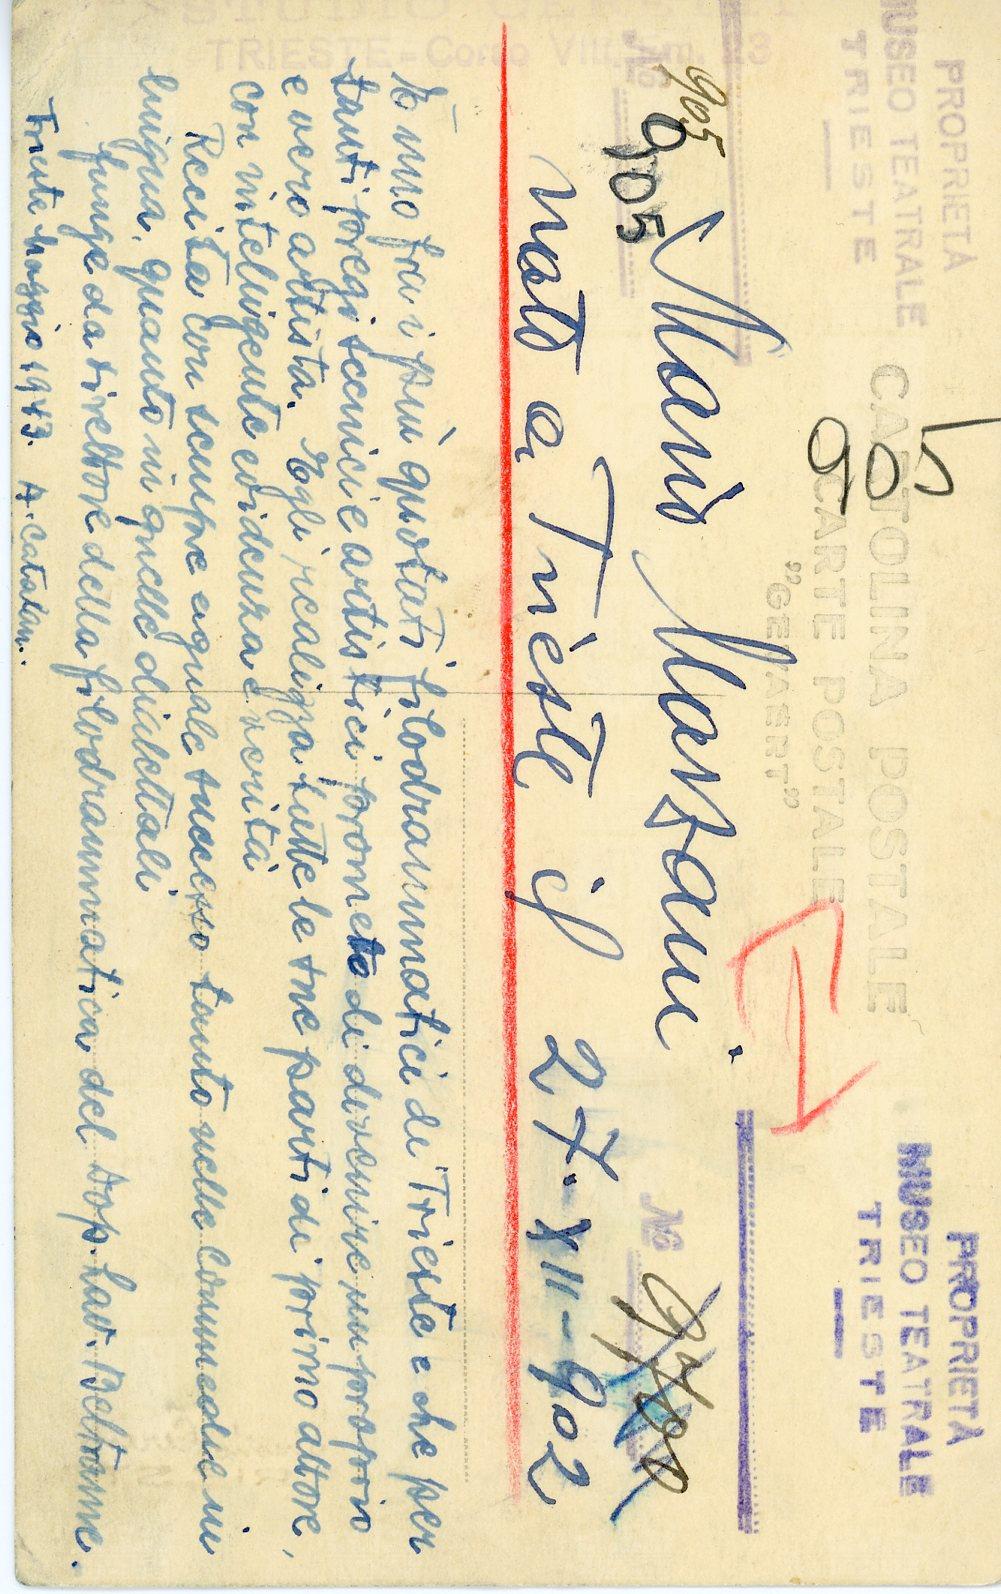 PROPRIETÀ
MUSEO TEATRALE
TRIESTE
PROPRIETÀ
MUSEO TEATRALE
TRIESTE
CARTOLINA POSTALE
CARTE POSTALE
"GEVAERT"
905
905
905
No
No
Mario Marzani.
nato a Trieste il 27-XII-902
È uno fra i più quotati filodrammatici di Trieste e che per
tanti pregi scenici e artistici promette di divenire un proprio
e vero artista. Egli realizza tutte le sue parti di primo attore,
con intelligente evidenza e verità
Recita con sempre eguale successo tanto nelle commedie in
lingua, quanto in quelle dialettali
funge da direttore della filodrammatica del Dop. Lav. Beltrame.
Trieste Maggio 1943. A. Catalan.
TRIESTE - Corso Vitt. Em. 13